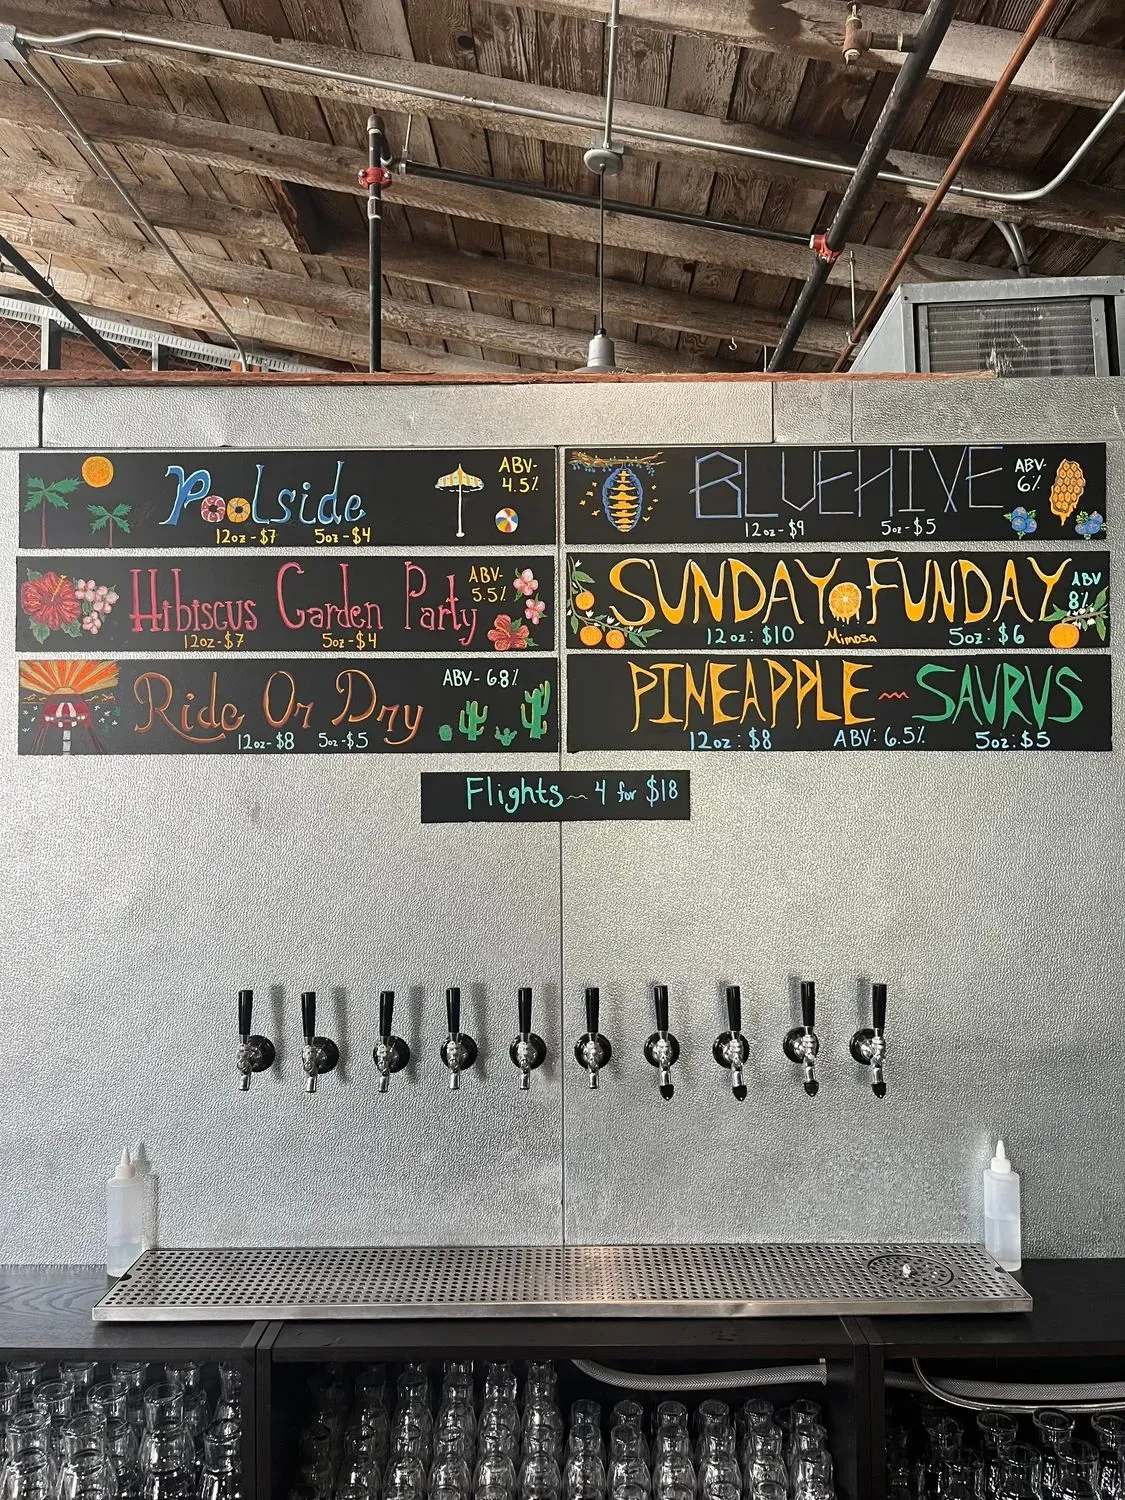 Poolside
ABV-
4.5%
12oz-$7 5oz-$4
Hibiscus Garden Party
ABV-
5.5%
12oz-$7 5oz-$4
Ride Or Dry
ABV- 6.8%
12oz-$8 5oz-$5
BLUEHIVE
ABV-
6%
12oz-$9 5oz-$5
SUNDAY FUNDAY
ABV
8%
12oz: $10 Mimosa 5oz: $6
PINEAPPLE ~ SAURUS
12oz: $8 ABV: 6.5% 5oz: $5
Flights ~ 4 for $18